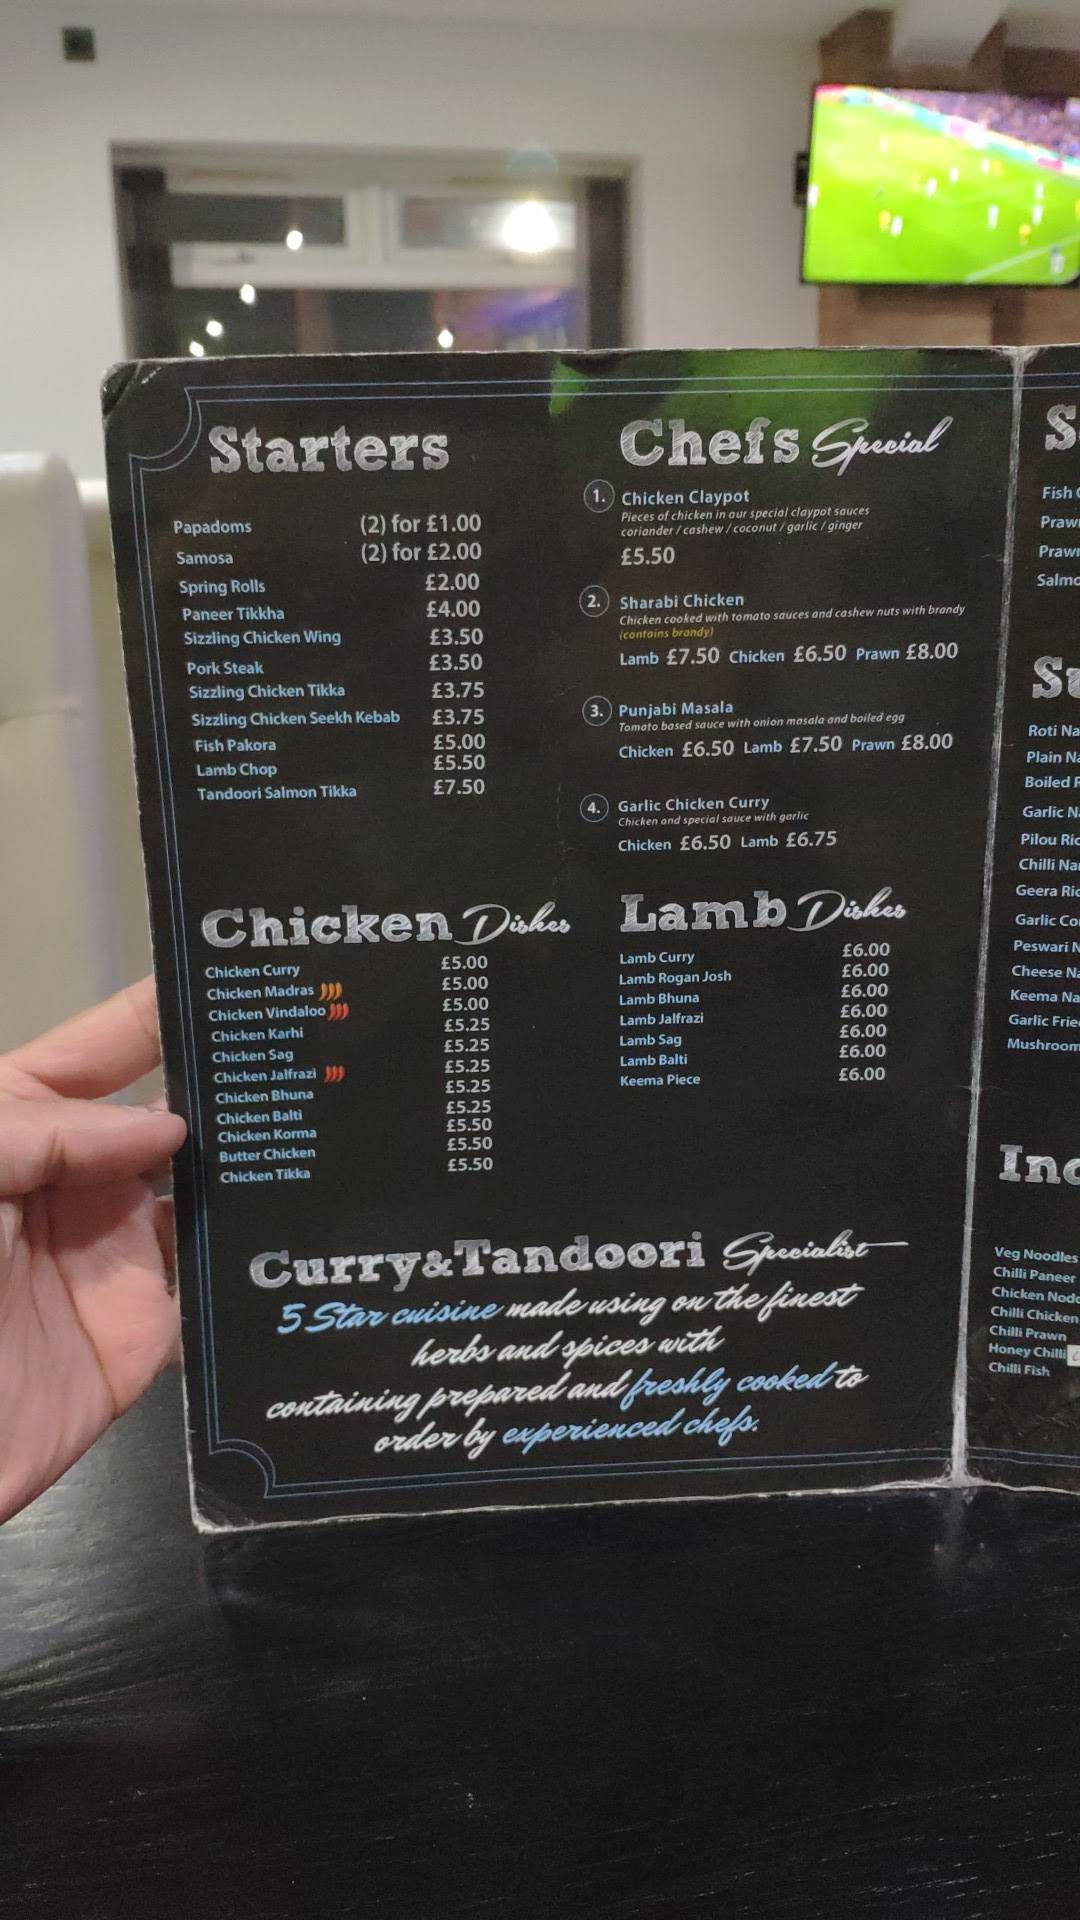 Starters
Papadoms (2) for £1.00
Samosa (2) for £2.00
Spring Rolls £2.00
Paneer Tikkha £4.00
Sizzling Chicken Wing £3.50
Pork Steak £3.50
Sizzling Chicken Tikka £3.75
Sizzling Chicken Seekh Kebab £3.75
Fish Pakora £5.00
Lamb Chop £5.50
Tandoori Salmon Tikka £7.50
Chefs Special
1. Chicken Claypot
Pieces of chicken in our special claypot sauces
coriander / cashew / coconut / garlic / ginger
£5.50
2. Sharabi Chicken
Chicken cooked with tomato sauces and cashew nuts with brandy
(contains brandy)
Lamb £7.50 Chicken £6.50 Prawn £8.00
3. Punjabi Masala
Tomato based sauce with onion masala and boiled egg
Chicken £6.50 Lamb £7.50 Prawn £8.00
4. Garlic Chicken Curry
Chicken and special sauce with garlic
Chicken £6.50 Lamb £6.75
Chicken Dishes
Chicken Curry £5.00
Chicken Madras £5.00
Chicken Vindaloo £5.00
Chicken Karhi £5.25
Chicken Sag £5.25
Chicken Jalfrazi £5.25
Chicken Bhuna £5.25
Chicken Balti £5.25
Chicken Korma £5.50
Butter Chicken £5.50
Chicken Tikka £5.50
Lamb Dishes
Lamb Curry £6.00
Lamb Rogan Josh £6.00
Lamb Bhuna £6.00
Lamb Jalfrazi £6.00
Lamb Sag £6.00
Lamb Balti £6.00
Keema Piece £6.00
Curry & Tandoori Specialist
5 Star cuisine made using on the finest
herbs and spices with
containing prepared and freshly cooked to
order by experienced chefs.
Fish
Roti
Plain
Boiled
Garlic
Pilou
Chilli
Geera
Garlic
Peswari
Cheese
Keema
Garlic
Mushroom
Veg Noodles
Chilli Paneer
Chicken
Chilli Chicken
Chilli Prawn
Honey Chilli
Chilli Fish